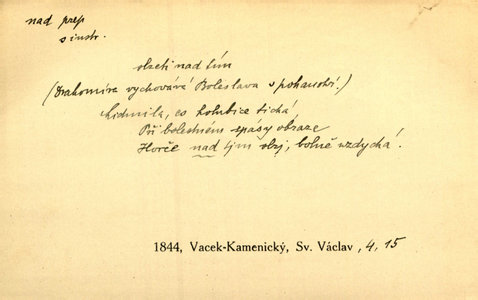 nad prep
s instr.
slzeti nad tím
(Drahomíra vychovává Boleslava s pohanství.)
Lidmila, co holubice tichá,
Při bolestném spásy obraze
Horče nad tjm slzj, bolně vzdychá!
1844, Vacek-Kamenický, Sv. Václav, 4. 15